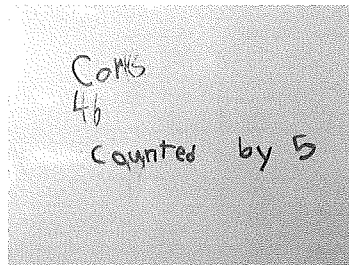 Corns
46
Counted by 5